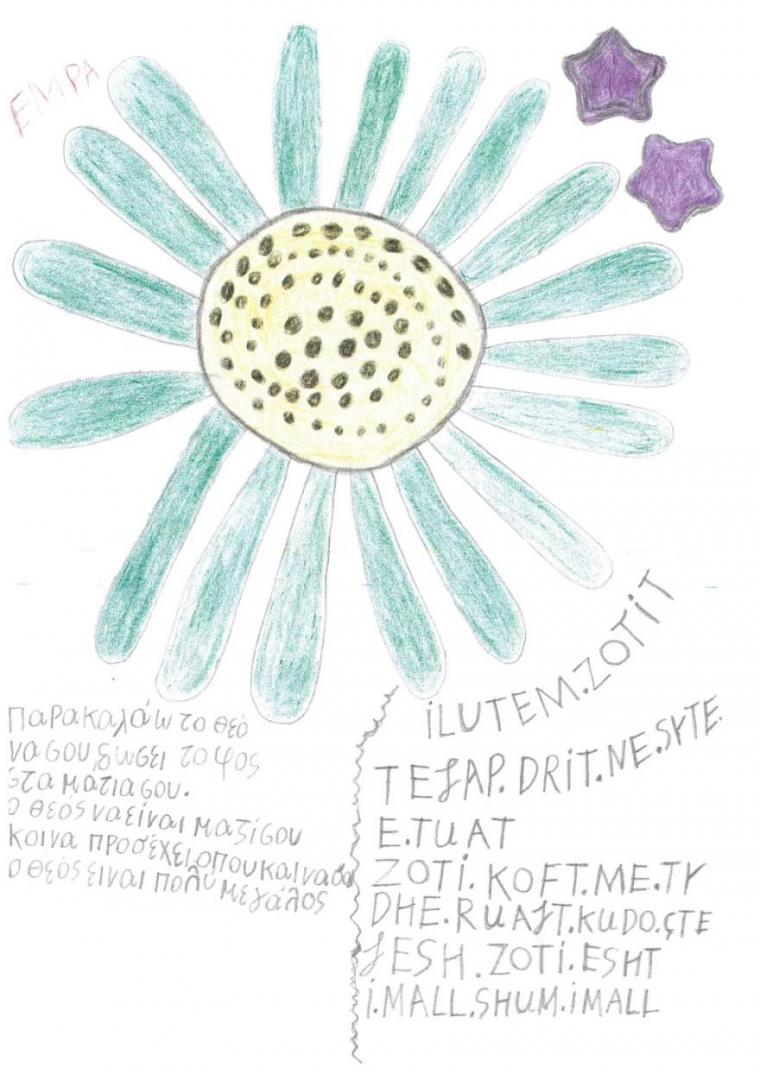 ΕΜΡΑ
Παρακαλάω το θεό
να σου δωσει το φος
στα ματια σου.
Ο θεός να είναι μαζί σου
κοι να προσέχει οπου και να σαι
Ο θεός ειναι πολύ μεγάλος
iLUTEM.ZOTiT
TE JAP. DRiT. NE. SYTE.
E.TUAT
ZOTi. KOFT. ME. TY
DHE. RUAJT. KUDO. ÇTE
JESH. ZOTi. ESHT
i.MALL. SHUM. iMALL